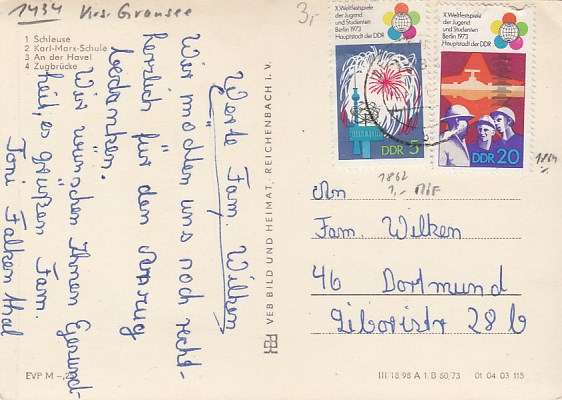 1434 Krs. Gransee
1 Schleuse
2 Karl-Marx-Schule
3 An der Havel
4 Zugbrücke
Werte Fam. Wilken
Wir möchten uns noch recht-
herzlich für den Anzug
bedanken.
Wir wünschen Ihnen Gesund-
heit, es grüßen Fam.
Toni Falkenthal
EVP M –,25
VEB BILD UND HEIMAT, REICHENBACH I. V.
3,-
X. Weltfestspiele
der Jugend
und Studenten
Berlin 1973
Hauptstadt der DDR
DDR 5
X. Weltfestspiele
der Jugend
und Studenten
Berlin 1973
Hauptstadt der DDR
DDR 20
1862
1864
1,- MiF
An
Fam. Wilken
46 Dortmund
Liboristr 28 b
III/18/98 A 1/B 60/73 01 04 03 115